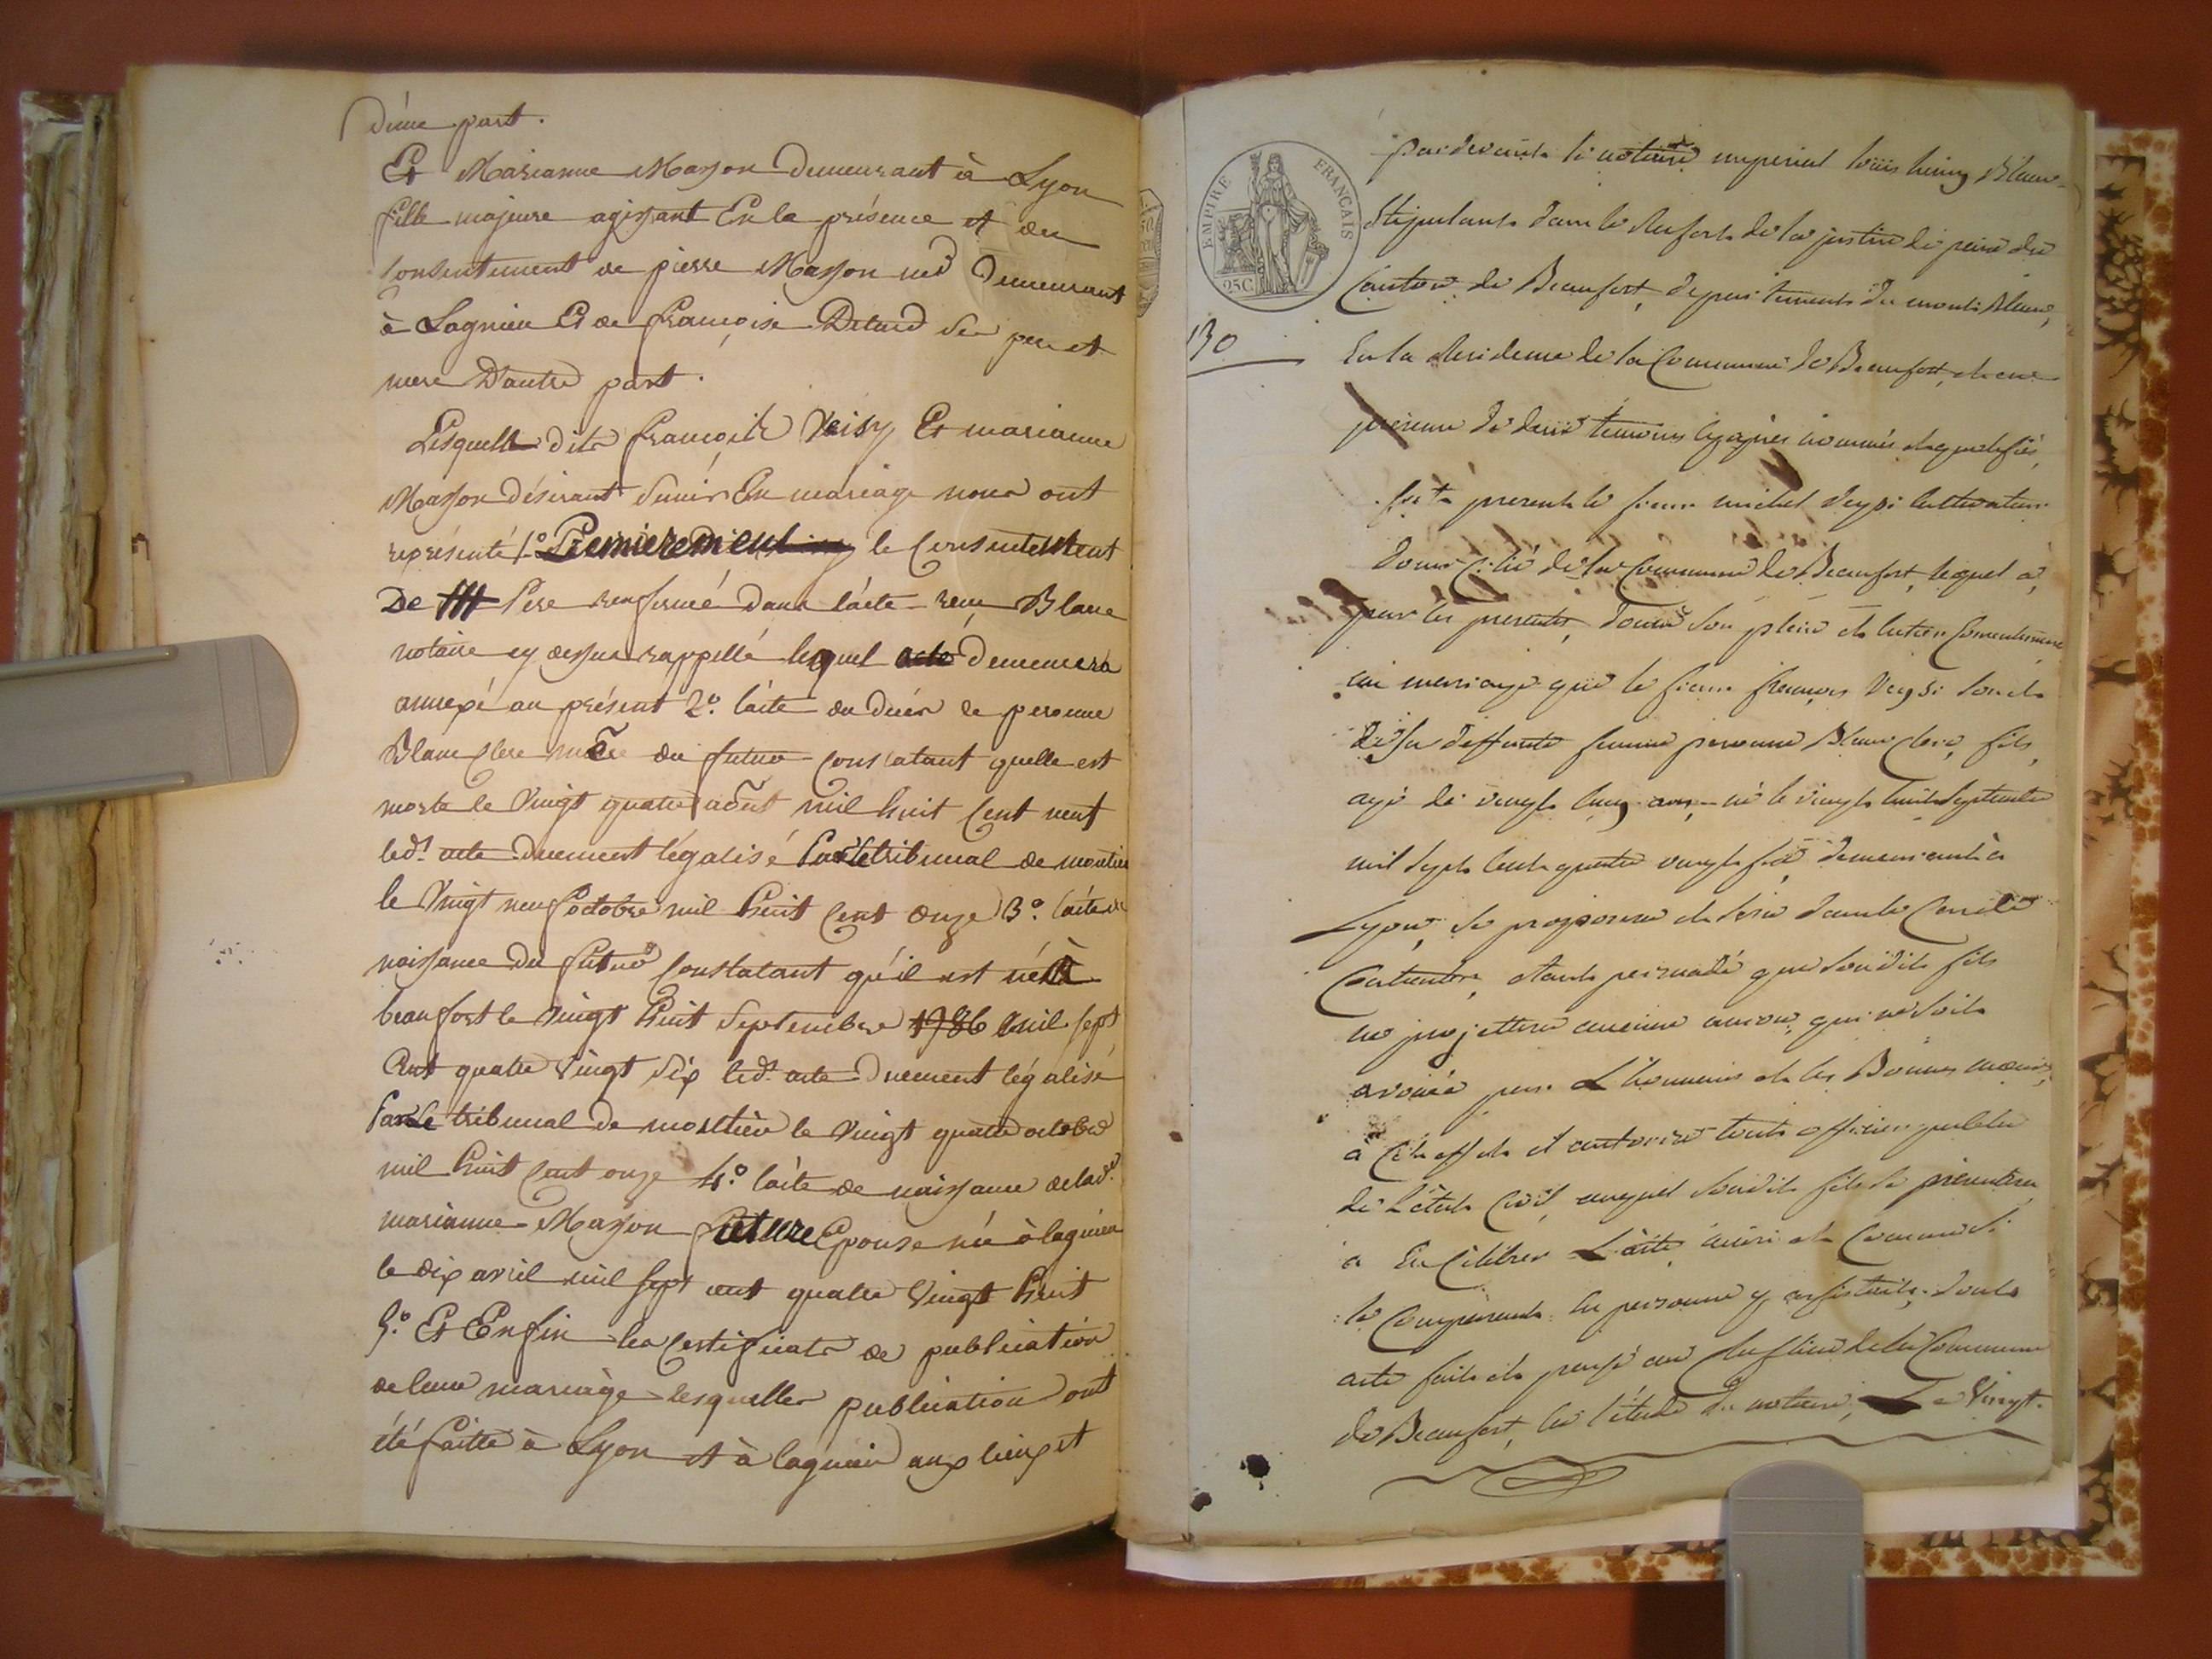 d'une part.
Et Marianne Masson demeurant à Lyon
fille majeure agissant En la présence et du
Consentement de pierre Masson md demeurant
à Lagnieu Et de françoise se pere et
mere D'autre part.
Lesquels dits françois Veisy Et marianne
Masson désirant s'unir En mariage nous ont
représenté 1.º Premierement le Consentement
De Pere renfermé dans l'acte reçu Blanc
notaire cy dessus rappellé lequel acte demeurera
annexé au présent 2.º l'acte du décès de peronne
Blanc mere du futur constatant quelle est
morte le Vingt quatre août mil huit Cent neuf
led.t acte duement légalisé Par le tribunal de moutier
le Vingt neuf octobre mil huit Cent onze 3.º l'acte de
naissance du futur Constatant qu'il est né à
beaufort le Vingt huit Septembre 1786 mil sept
Cent quatre Vingt Six led.t acte duement légalisé
Par Le tribunal de moutier le Vingt quatre octobre
mil huit Cent onze 4.º l'acte de naissance de lad.e
marianne Masson future Epouse née à lagnieu
le dix avril mil sept cent quatre Vingt huit
5.º Et Enfin les Certificats de publication
de leur mariage lesquelles publication ont
été faitte à Lyon et à lagnieu aux lieux et
EMPIRE FRANÇAIS
25 C
130
pardevant le notaire imperial Louis Blanc
Stipulant dans le Ressort de la justice de paix du
Canton de Beaufort, departement du mont Blanc,
En la Residence de la Commune de Beaufort, et en
presence de deux temoins cy après nommés et qualifiés,
fut présent le sieur michel Veysi cultivateur
domicilié de la Commune de Beaufort, lequel a,
par les presentes, donné son plein et entier Consentement
au mariage que le sieur françois Veysi son et
de sa deffunte femme peronne Blanc, fils,
agé de vingt cinq ans, né le vingt huit Septembre
mil Sept Cent quatre vingt six, demeurant à
Lyon, se proposera de faire dans le Cercle
étant persuadé que son dit fils
ne projettera aucune union qui ne soit
avouée par L'honneur et les Bonnes mœurs,
à Cet effet il autorise tout officier public
de L'état Civil auquel sondit fils se présentera
à En Célébrer L'acte, ainsi et Comme si
le Comparant en personne y assistait. dont
acte fait et passé au de la Commune
de Beaufort, en l'étude du notaire, Le Vingt-